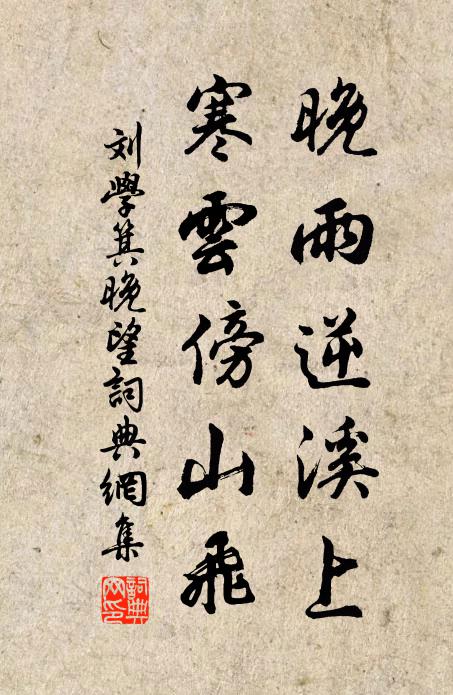 晚雨逆溪上
寒雲傍山飛
刘學箕晚望詞典網集
詞典网印